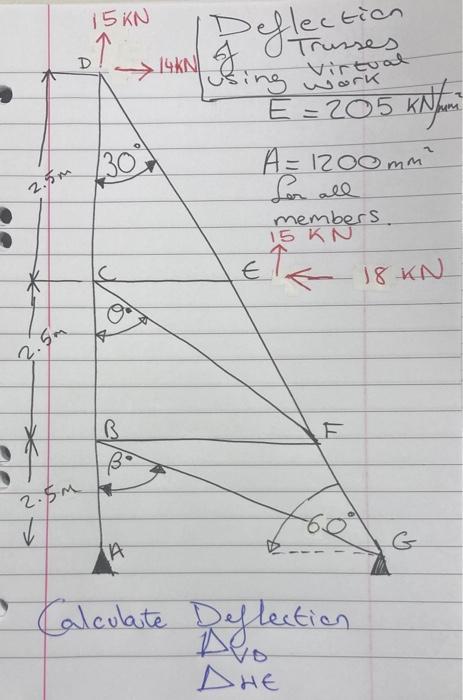 15 KN
Deflection
of Trusses
using Virtual
work
D
14KN
E = 205 KN/mm²
30°
A = 1200 mm²
for all
members.
2.5m
15 KN
C
E
18 KN
θ°
2.5m
B
F
β°
2.5m
60°
A
G
Calculate Deflection
ΔVD
ΔHE